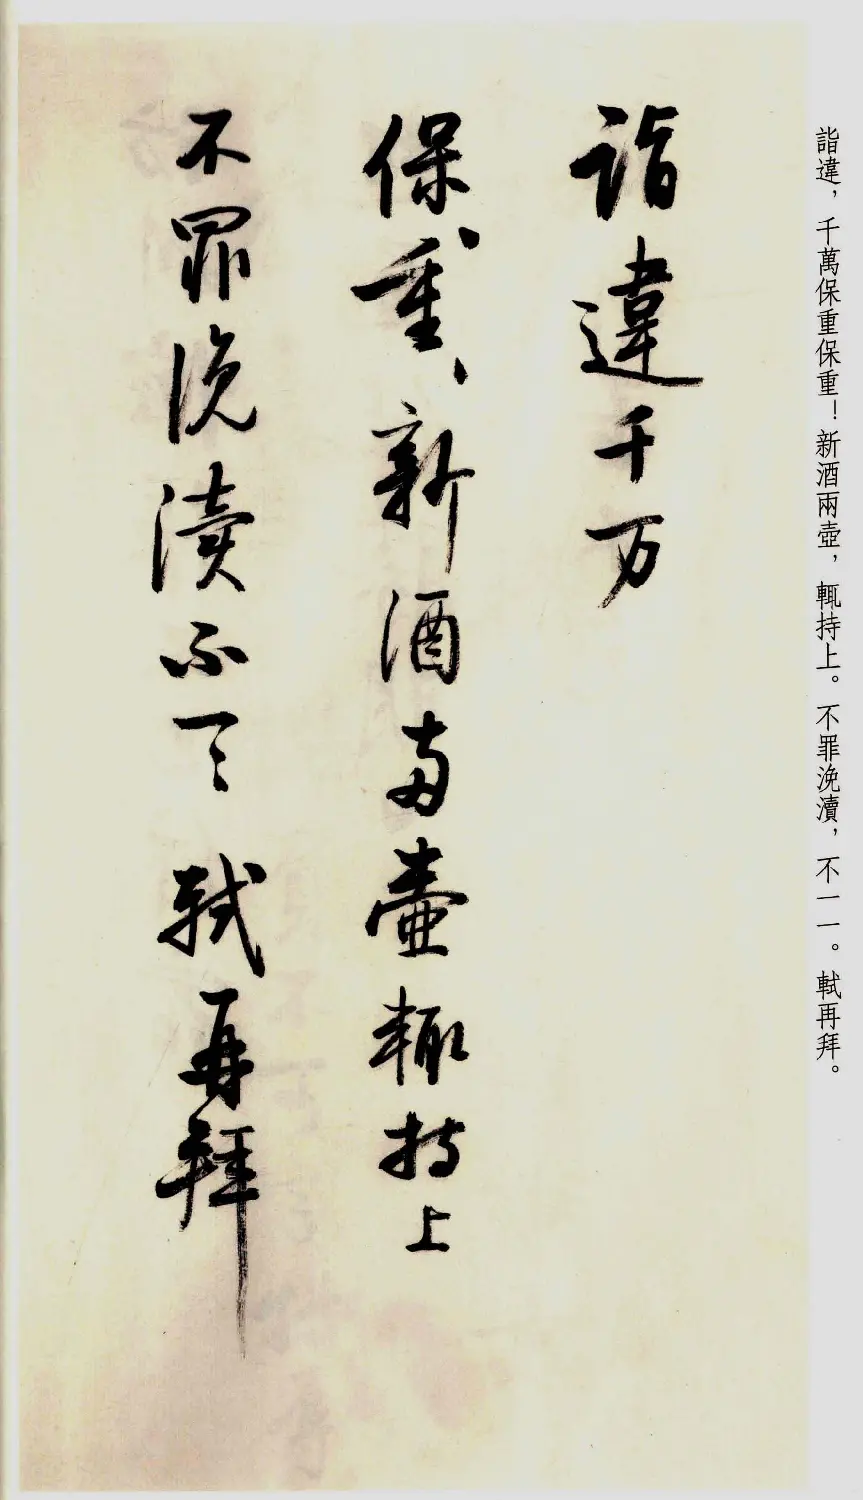 詣違，千萬保重保重！新酒兩壺，輒持上。不罪浼瀆，不一一。軾再拜。
詣違千万
保重、、新酒两壷輒持上
不罪浼瀆不一一軾再拜